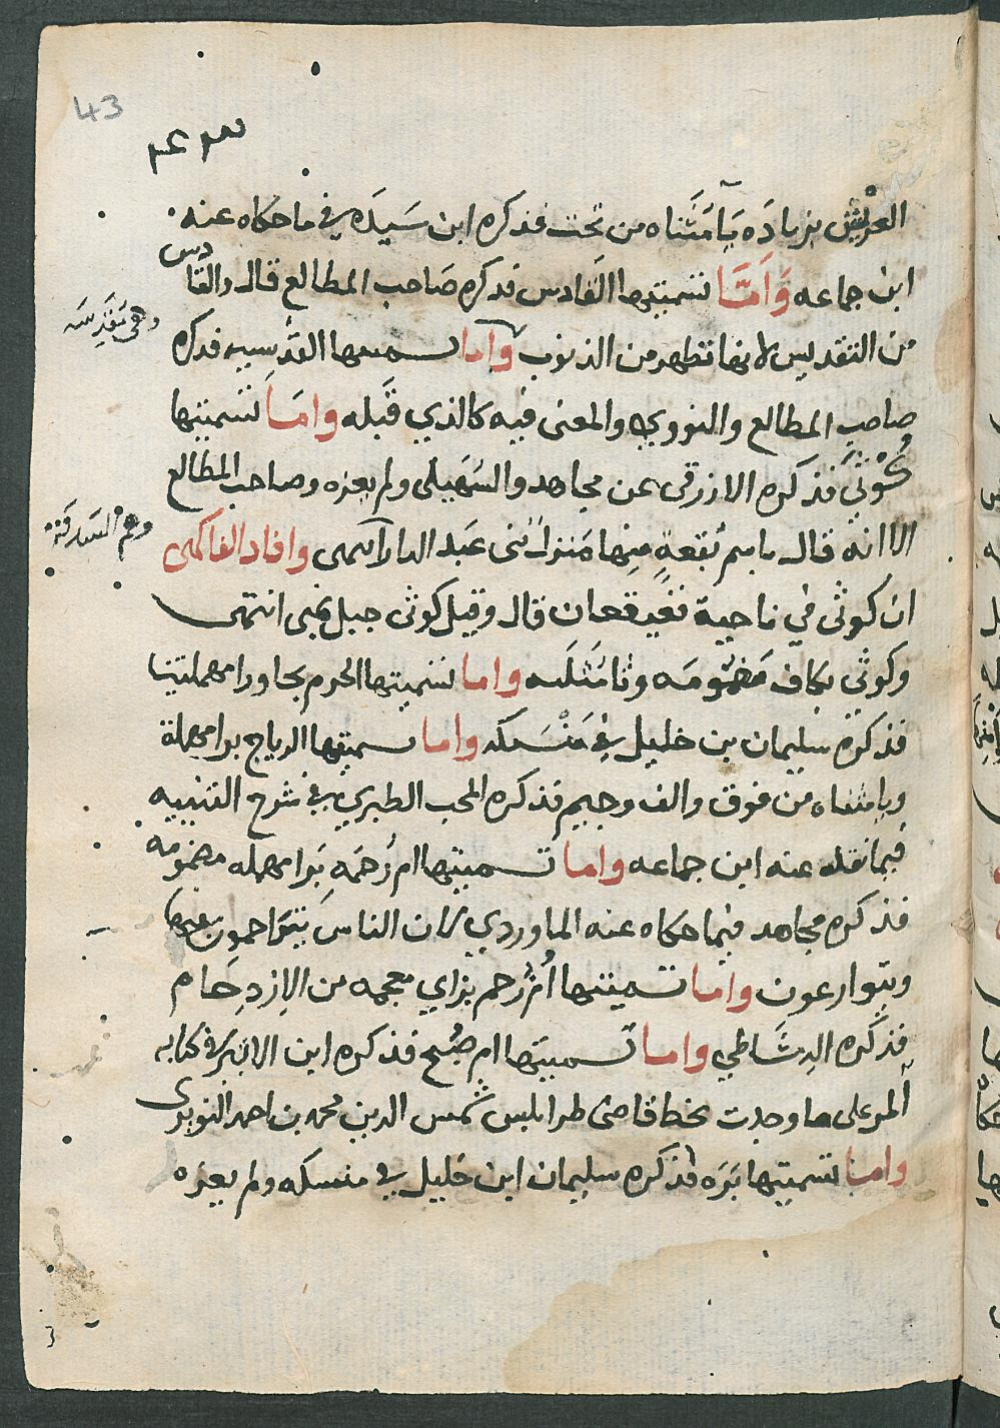 43
العريش بزيادة يآ مثناه من تحت فذكره ابن سَيدَه في ما حكاه عنه
ابن جماعه وَاَمَّا تسميتها القادس فذكره صَاحب المطالع قال والقادس
من التقديس لانها تطهر من الذنوب وآما تسميتها القدسيه فذكره
صاحب المطالع والنووي والمعنى فيه كالذي قَبله وامَا تسميتها
كُوْثَى فذكره الازرقى عن مجاهد والسُهَيلى ولم يعزه وصاحب المطالع
الا انه قال باسم بُقعةٍ منها مَنزل بنى عَبد الدار انتهى وافاد الفاكهى
ان كوثى في ناحية قعيقعان قال وقيل كوثى جبل بمنى انتهى
وكوثى بكاف مَضمُومَه وثا مثلثه واما تسميتها الحرم بحا ورا مهملتين
فذكره سليمان بن خليل في مَنْسَكه واما تسميتها الرياج برا مهملة
ويا مثناه من فوق والف وجيم فذكره المحب الطبري في شرح التنبيه
فيما نقله عنه ابن جماعه واما تسميتها ام رُحمَه بَرا مهمله مضمومه
فذكره مجاهد فيما حكاه عنه الماوردي لان الناس يتراحمون فيها
ويتوارعون واما تسميتها اُم زُحم بزاي معجمه من الازدِحَام
فذكره الرشَاطي واما تسميتها ام صُبح فذكره ابن الاثير في كتابه
المرعلى ما وجدت بخط قاضى طرابلس شمس الدين محمد بن احمد النويرى
واما تسميتها بَرَه فذكره سليمان ابن خليل في منسكه ولم يعزه